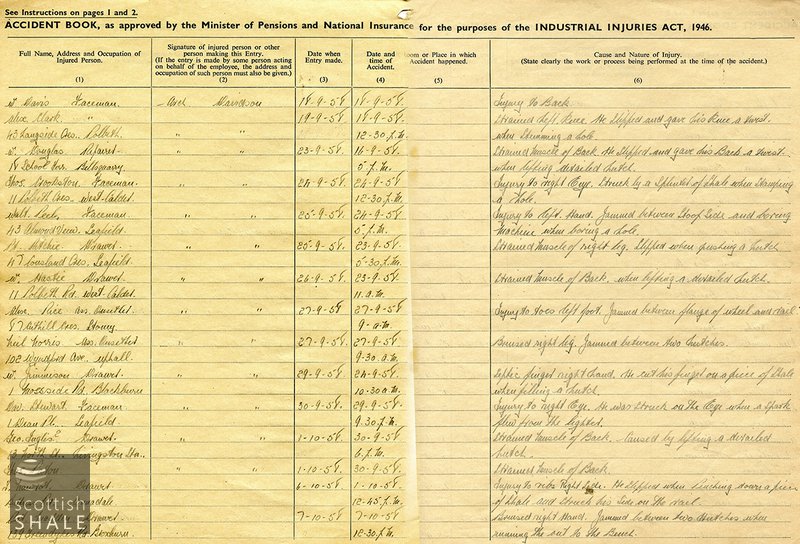 See Instructions on pages 1 and 2.
ACCIDENT BOOK, as approved by the Minister of Pensions and National Insurance for the purposes of the INDUSTRIAL INJURIES ACT, 1946.
Full Name, Address and Occupation of Injured Person. (1)
Signature of injured person or other person making this Entry. (If the entry is made by some person acting on behalf of the employee, the address and occupation of such person must also be given.) (2)
Date when Entry made. (3)
Date and time of Accident. (4)
oom or Place in which Accident happened. (5)
Cause and Nature of Injury. (State clearly the work or process being performed at the time of the accident.) (6)
W. Davis Faceman Davidson 18-9-58 18-9-58 Injury to Back
Alex Clark " " 19-9-58 18-9-58 Strained left Knee. He slipped and gave his Knee a twist
43 Langside Cres. Polbeth 12-30 p.m. when stemming a hole.
W. Douglas " " 23-9-58 16-9-58 Strained Muscle of Back. He slipped and gave his Back a twist
18 School Bellsquarry 5 p.m. when lifting derailed hutch.
Thos. Crookston Faceman " " 24-9-58 24-9-58 Injury to right Eye. Struck by a Splinter of Shale when Stamping
11 Polbeth Cres. West-Calder 12-30 p.m. a hole.
Walt. Peel Faceman " " 25-9-58 24-9-58 Injury to left Hand. Jammed between Stoop Side and boring
43 Almond View Seafield 5 p.m. machine when boring a hole.
Ritchie Drawer " " 25-9-58 23-9-58 Strained muscle of right leg. Slipped when pushing a hutch
47 Cousland Cres. Seafield 5-30 p.m.
W. Drawer " " 26-9-58 23-9-58 Strained Muscle of Back, when lifting a derailed hutch.
11 Polbeth Rd. West-Calder 11 a.m.
Alex. Pace Ass. Onsetter " " 27-9-58 27-9-58 Injury to toes left foot. Jammed between flange of wheel and rail
87 Cres. Stoney 9- a.m.
Neil Norris Ass. Onsetter " " 27-9-58 27-9-58 Bruised right leg. Jammed between two hutches.
102 Wyndford Ave. Uphall 9-30 a.m.
W. Jimmieson Drawer " " 29-9-58 24-9-58 Septic finger right hand. He cut his finger on a piece of Shale
1 Mosside Rd. Blackburn 10-30 a.m. when filling a hutch.
Dav. Stewart Faceman " " 30-9-58 29-9-58 Injury to right Eye. He was struck on the Eye when a Spark
1 Dean Pl. Seafield 9-30 p.m. flew from the lighter.
Geo. Inglis Drawer " " 1-10-58 30-9-58 Strained Muscle of Back. Caused by lifting a derailed
Livingston Sta. 6 p.m. hutch.
" " 1-10-58 30-9-58 Strained Muscle of Back.
Drawer 6-10-58 1-10-58 Injury to ribs Right Side. He slipped when pinching down a piece
12-45 p.m. of Shale and struck his side on the rail
Drawer 7-10-58 7-10-58 Bruised right Hand. Jammed between two Hutches when
Broxburn 12-30 p.m. running the out to the Bench.
scottish
SHALE